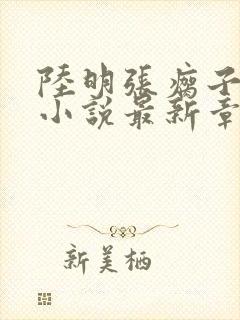 陸明張瘸子
小說最新章
新美栖